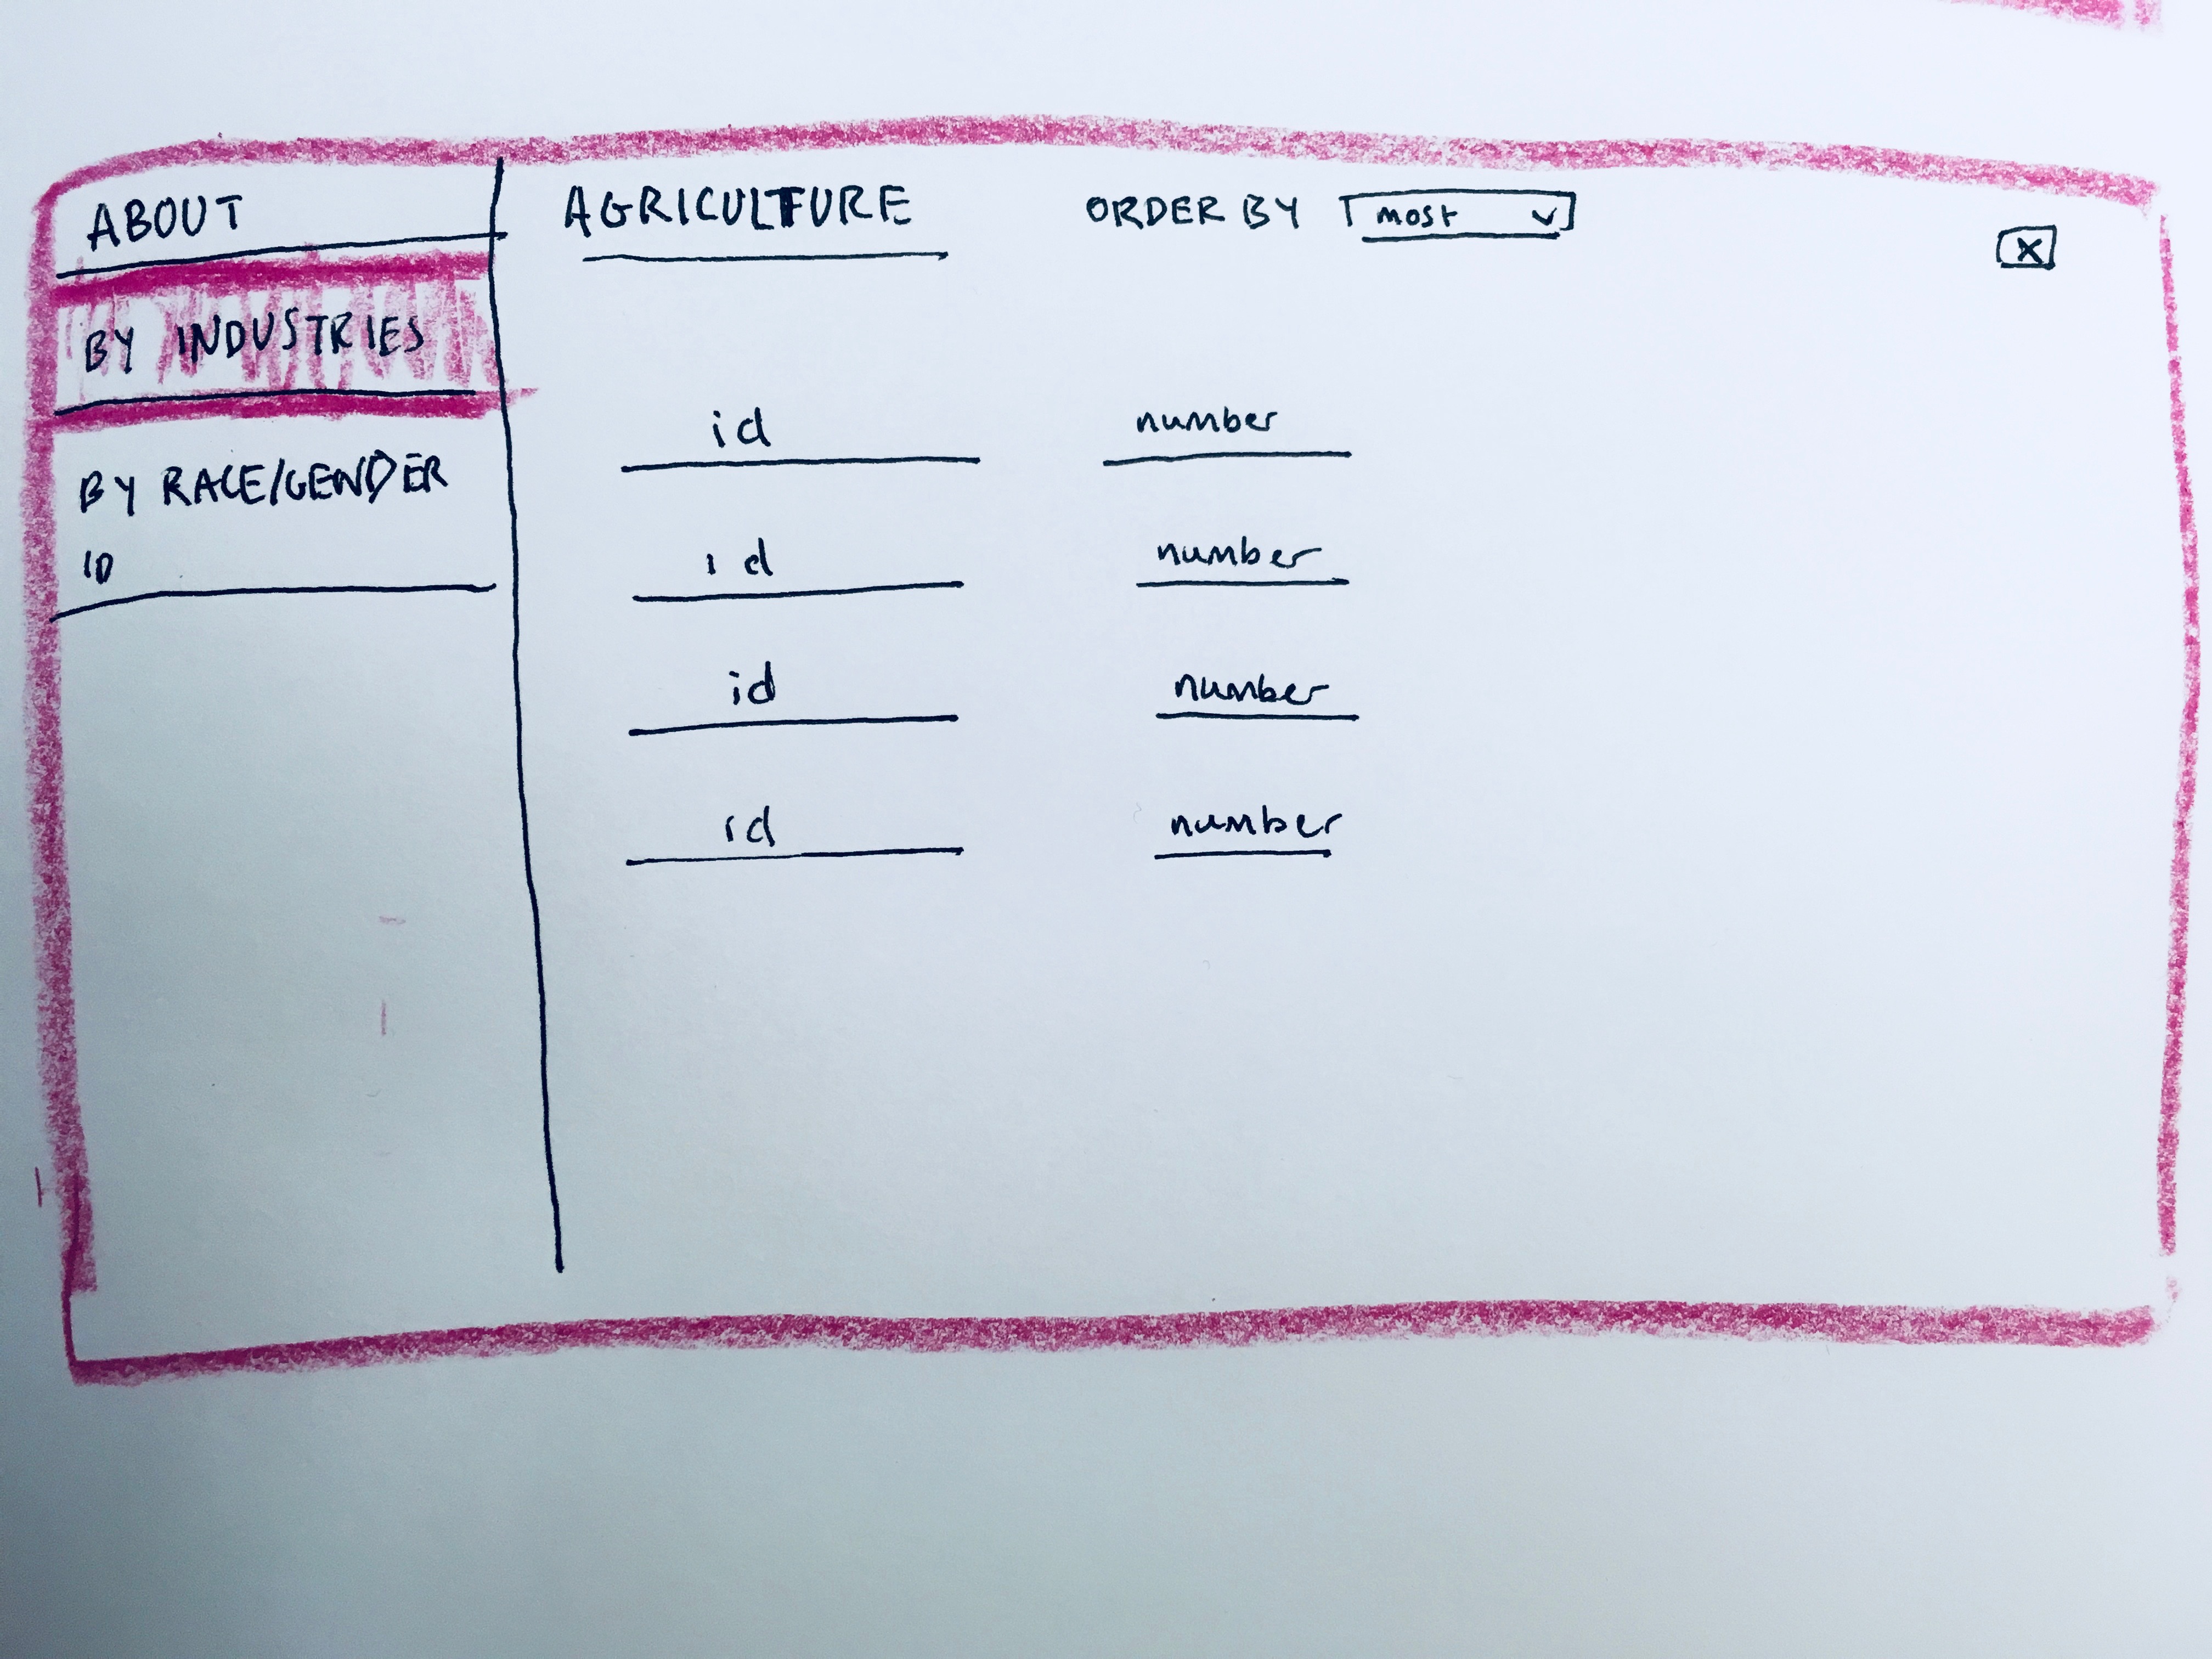 ABOUT
BY INDUSTRIES
BY RACE/GENDER
ID
AGRICULTURE
ORDER BY most v
X
id number
id number
id number
id number